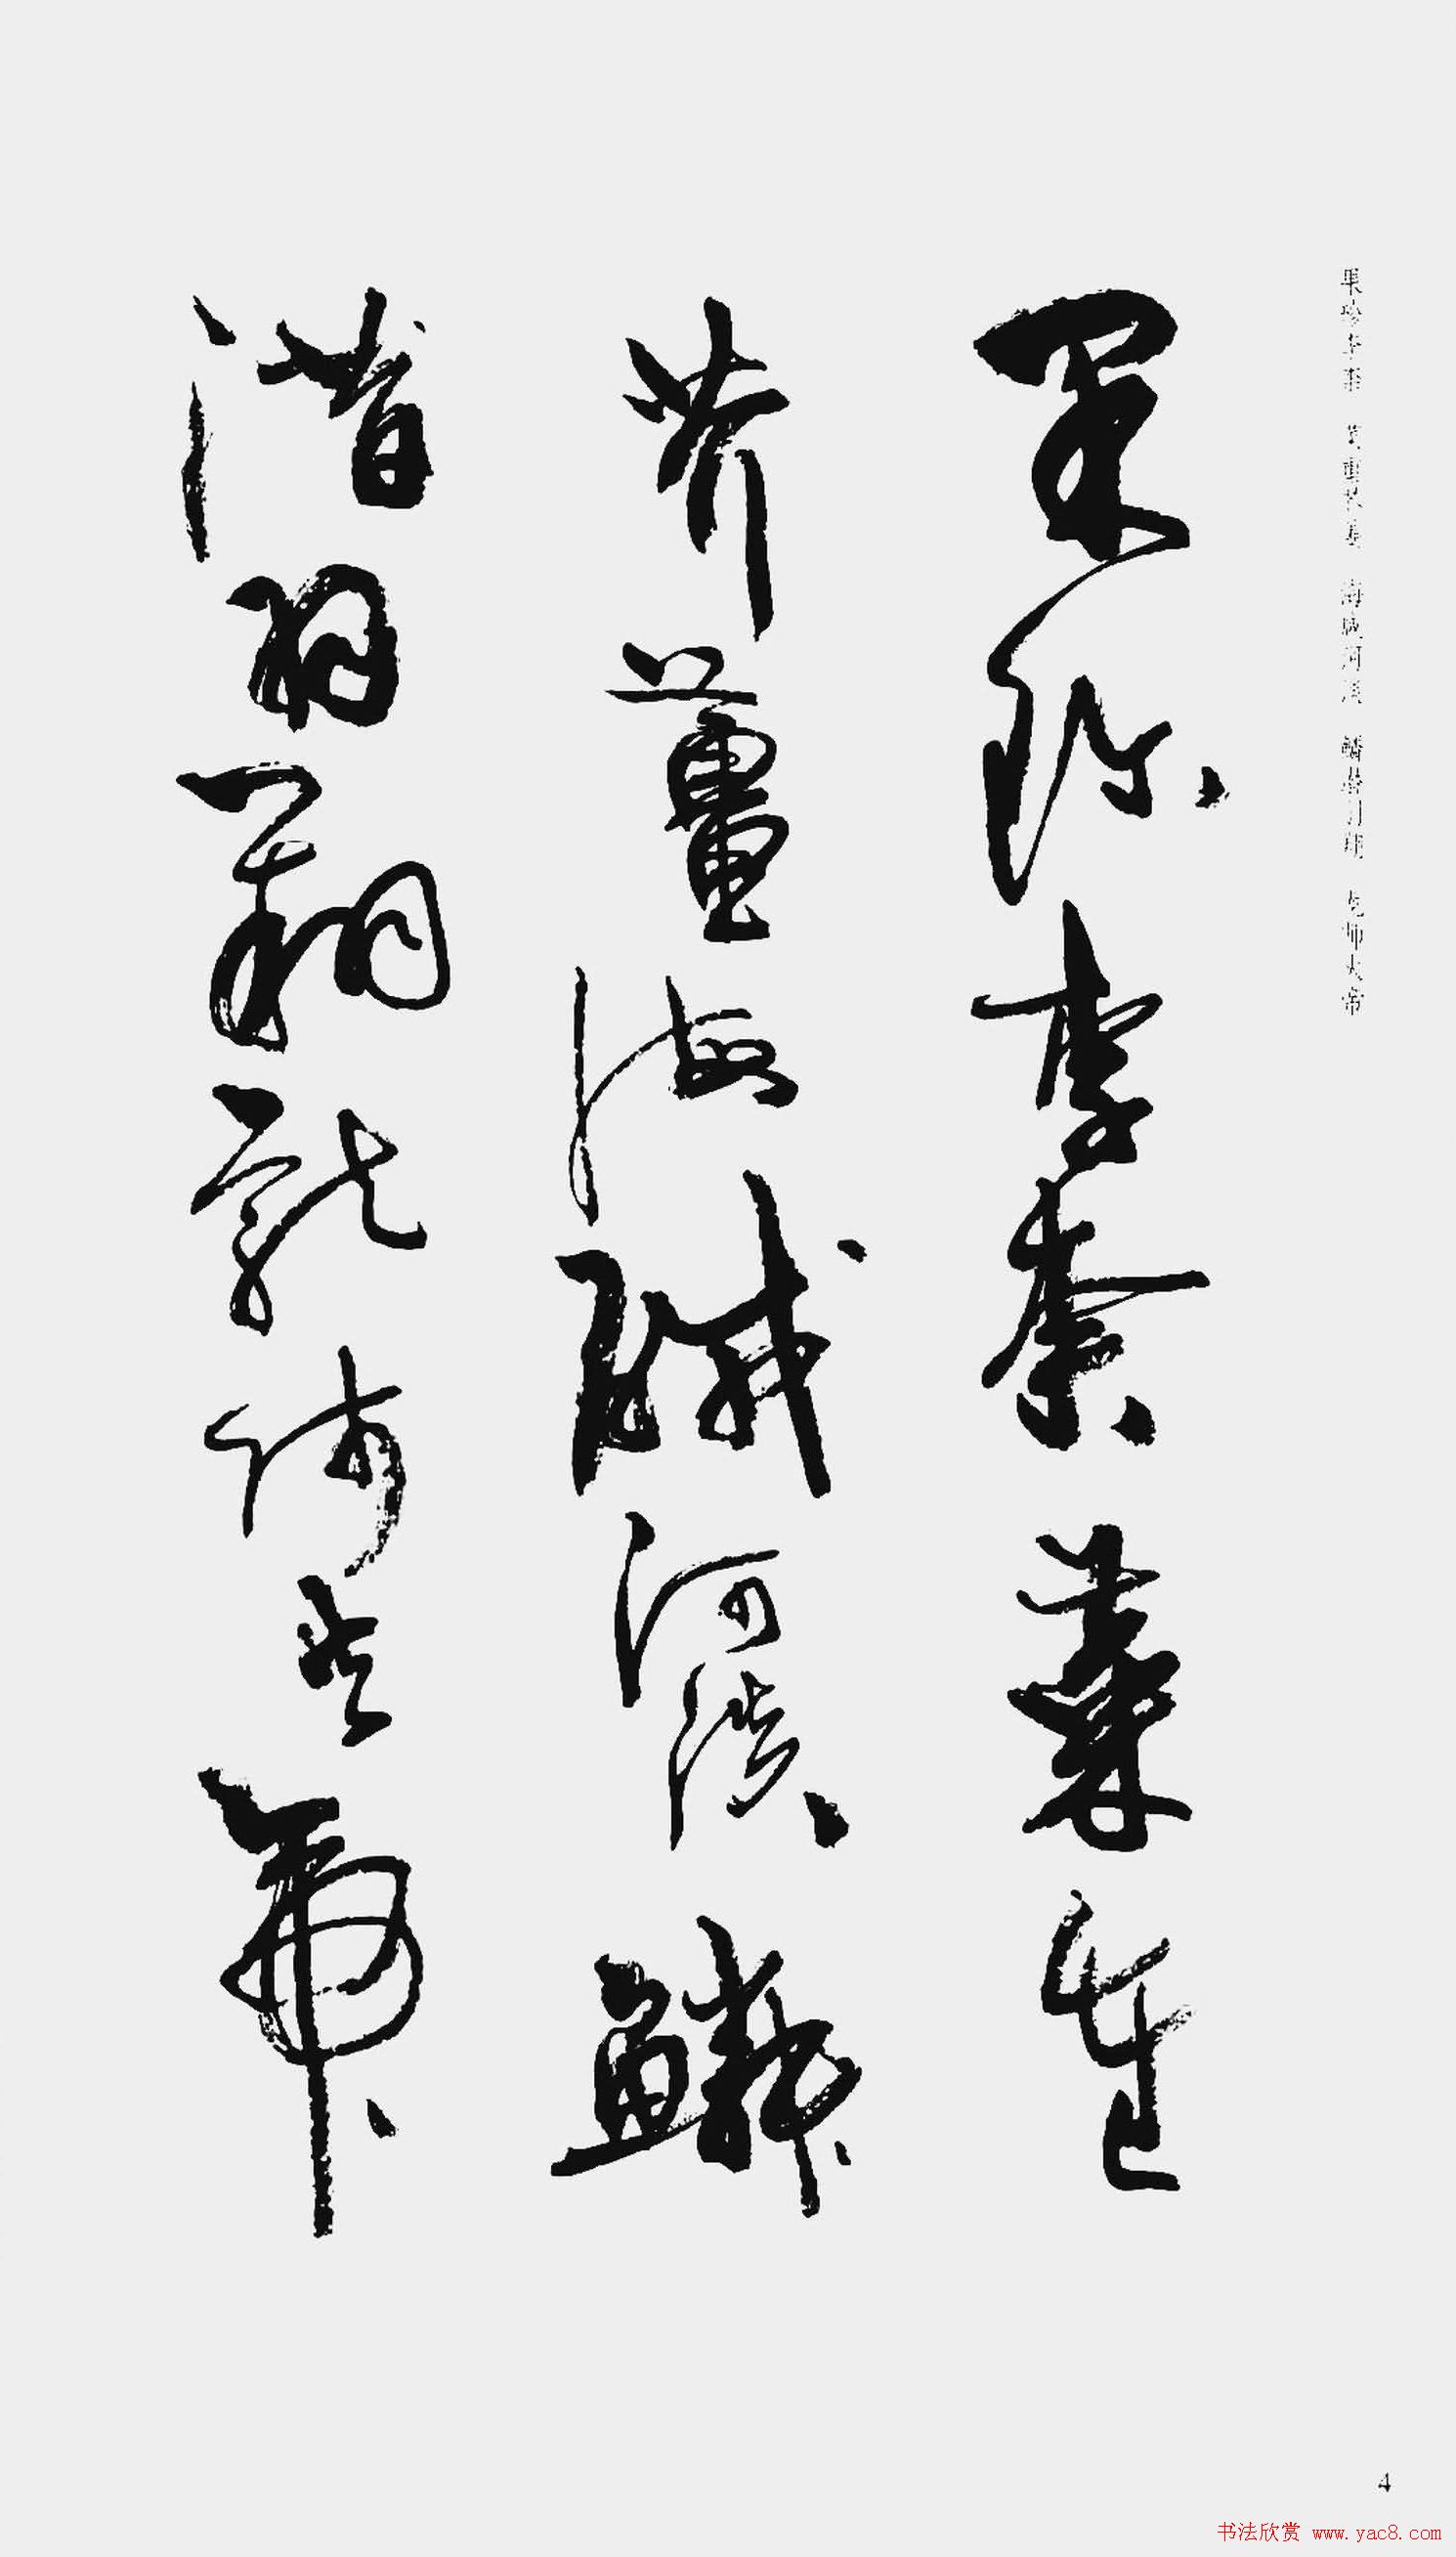 果珍李柰 菜重芥姜 海咸河淡 鳞潜羽翔 龙师火帝
果珍李柰菜重
芥薑海鹹河淡鳞
潛羽翔龍師火帝
4
书法欣赏 www.yac8.com